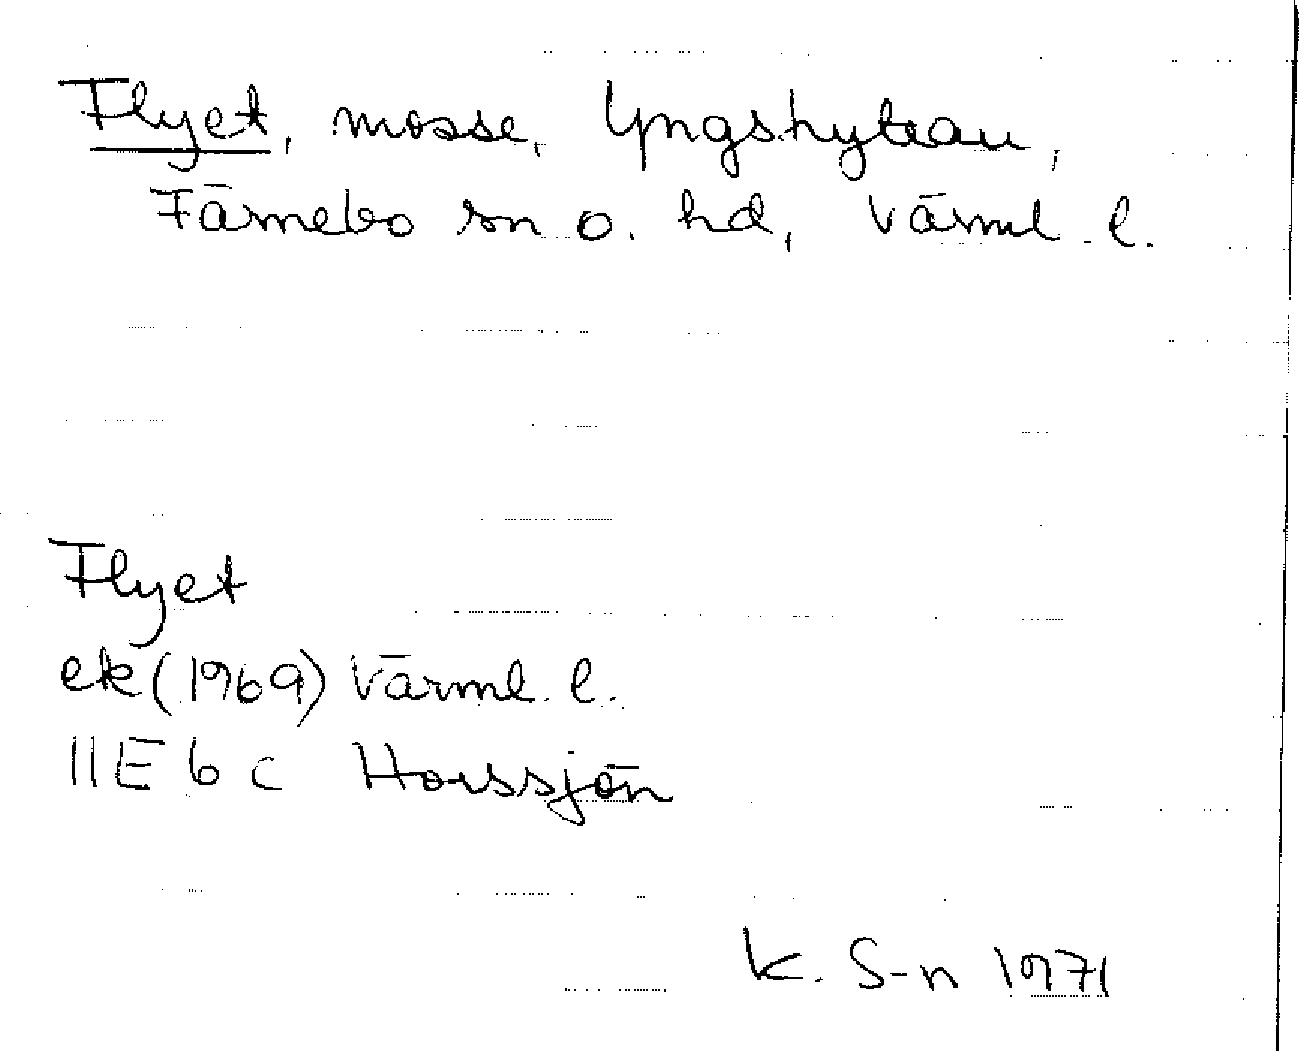 Flyet, mosse, Yngshyttan,
Färnebo sn o. hd, Värml. l.
Flyet
ek (1969) Värml. l.
11E 6c Horssjön
K. S-n 1971